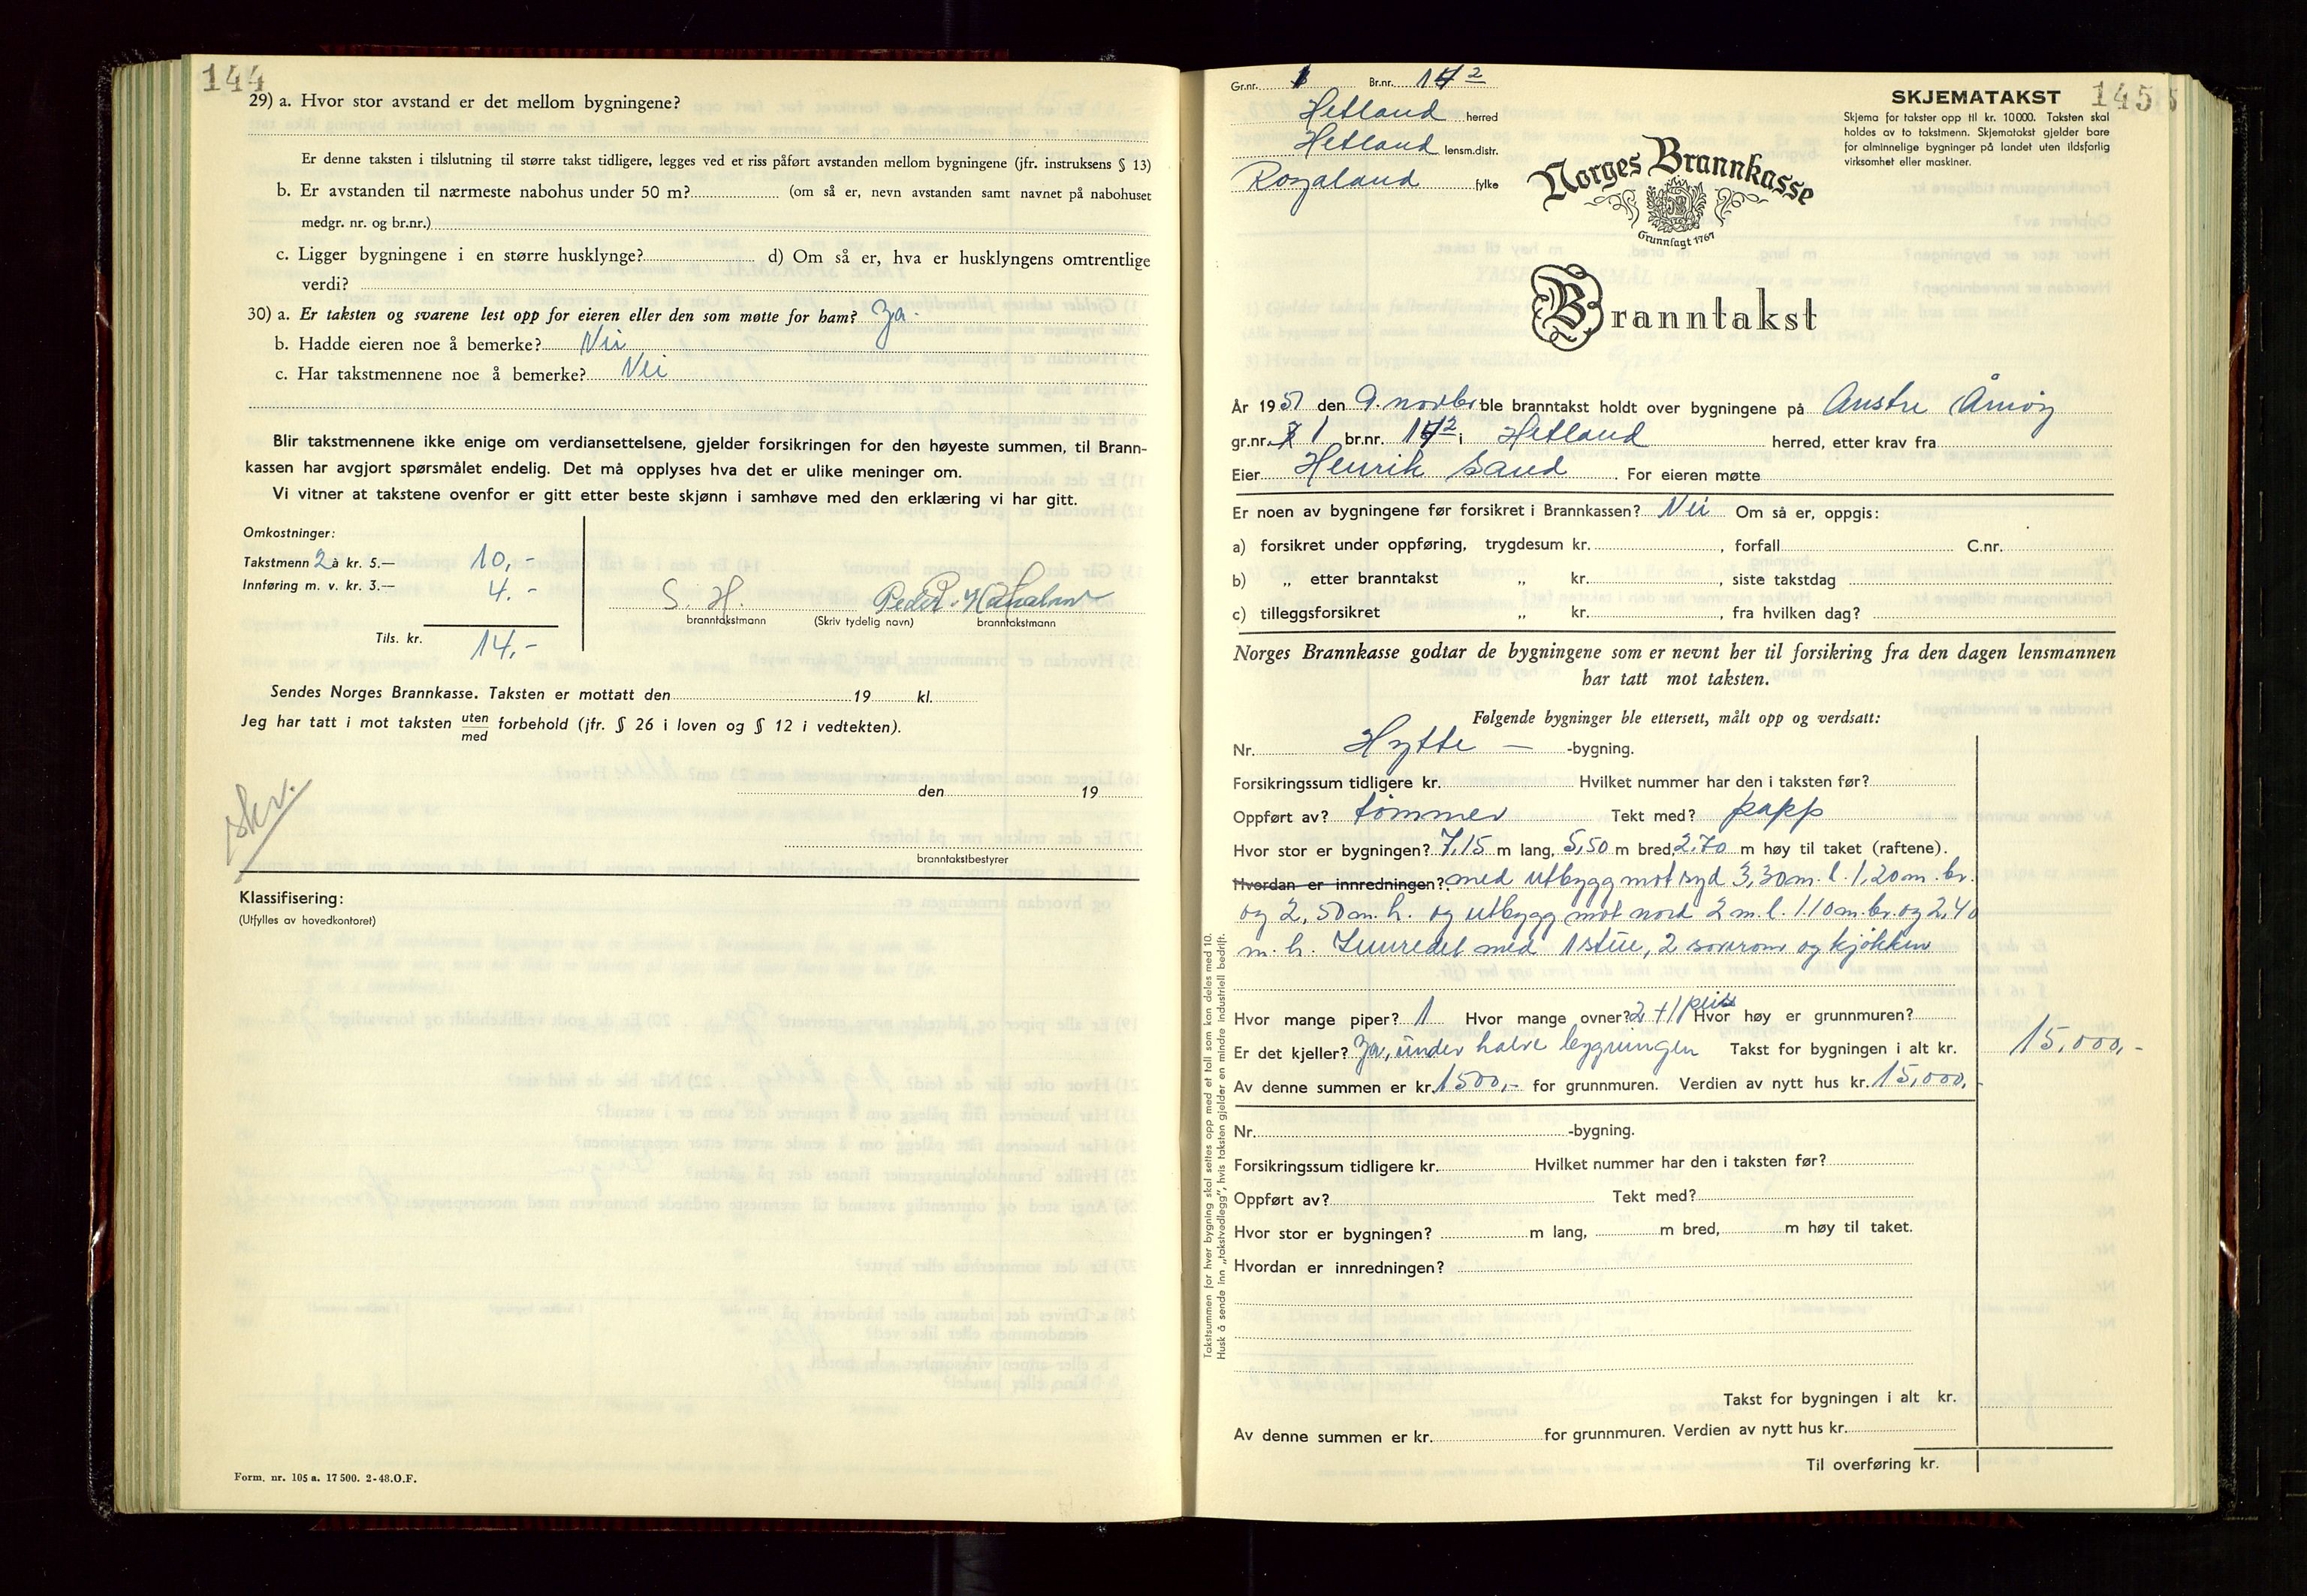 144
29) a. Hvor stor avstand er det mellom bygningene?
Er denne taksten i tilslutning til større takst tidligere, legges ved et riss påført avstanden mellom bygningene (jfr. instruksens § 13)
b. Er avstanden til nærmeste nabohus under 50 m? (om så er, nevn avstanden samt navnet på nabohuset
medgr. nr. og br.nr.)
c. Ligger bygningene i en større husklynge? d) Om så er, hva er husklyngens omtrentlige
verdi?
30) a. Er taksten og svarene lest opp for eieren eller den som møtte for ham? Ja.
b. Hadde eieren noe å bemerke? Nei
c. Har takstmennene noe å bemerke? Nei
Blir takstmennene ikke enige om verdiansettelsene, gjelder forsikringen for den høyeste summen, til Brann-
kassen har avgjort spørsmålet endelig. Det må opplyses hva det er ulike meninger om.
Vi vitner at takstene ovenfor er gitt etter beste skjønn i samhøve med den erklæring vi har gitt.
Omkostninger:
Takstmenn 2 à kr. 5.— 10,-
Innføring m. v. kr. 3.— 4.-
Tils. kr. 14,-
S. H. Peder
branntakstmann (Skriv tydelig navn) branntakstmann
Sendes Norges Brannkasse. Taksten er mottatt den 19 kl.
Jeg har tatt i mot taksten uten/med forbehold (jfr. § 26 i loven og § 12 i vedtekten).
den 19
skr.
branntakstbestyrer
Klassifisering:
(Utfylles av hovedkontoret)
Form. nr. 105 a. 17 500. 2-48. O.F.
145
Gr.nr. 1 Br.nr. 142
Hetland herred
Hetland lensm.distr.
Rogaland fylke
SKJEMATAKST
Skjema for takster opp til kr. 10 000. Taksten skal
holdes av to takstmenn. Skjematakst gjelder bare
for alminnelige bygninger på landet uten ildsfarlig
virksomhet eller maskiner.
Norges Brannkasse
Grunnlagt 1767
Branntakst
År 1951 den 9. novbr ble branntakst holdt over bygningene på Austre Åmøy
gr.nr. 1 br.nr. 142 i Hetland herred, etter krav fra
Eier Henrik Sand For eieren møtte
Er noen av bygningene før forsikret i Brannkassen? Nei Om så er, oppgis:
a) forsikret under oppføring, trygdesum kr. , forfall C.nr.
b) „ etter branntakst „ kr. , siste takstdag
c) tilleggsforsikret „ kr. , fra hvilken dag?
Norges Brannkasse godtar de bygningene som er nevnt her til forsikring fra den dagen lensmannen
har tatt mot taksten.
Følgende bygninger ble ettersett, målt opp og verdsatt:
Nr. Hytte — -bygning.
Forsikringssum tidligere kr. Hvilket nummer har den i taksten før?
Oppført av? tømmer Tekt med? papp
Hvor stor er bygningen? 7,15 m lang, 5,50 m bred, 2,70 m høy til taket (raftene).
Hvordan er innredningen? med utbygg mot syd 3,30 m. l. 1,20 m. br.
og 2,50 m. h. og utbygg mot nord 2 m. l. 1.10 m. br. og 2,40
m. h. Innredet med 1 stue, 2 soverom og kjøkken
Hvor mange piper? 1 Hvor mange ovner? 2 + 1 peis Hvor høy er grunnmuren?
Er det kjeller? Ja, under halve bygningen Takst for bygningen i alt kr. 15.000,-
Av denne summen er kr. 1500,- for grunnmuren. Verdien av nytt hus kr. 15,000,-
Nr. -bygning.
Forsikringssum tidligere kr. Hvilket nummer har den i taksten før?
Oppført av? Tekt med?
Hvor stor er bygningen? m lang, m bred, m høy til taket.
Hvordan er innredningen?
Takst for bygningen i alt kr.
Av denne summen er kr. for grunnmuren. Verdien av nytt hus kr.
Til overføring kr.
Takstsummen for hver bygning skal settes opp med et tall som kan deles med 10.
Husk å sende inn „takstvedlegg", hvis taksten gjelder en mindre industriell bedrift.